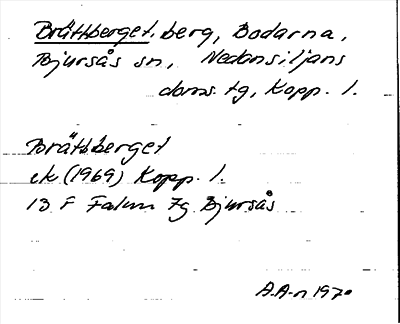 Brättberget, berg, Bodarna,
Bjursås sn, Nedansiljans
doms. tg, Kopp. l.
Brättberget
ek (1969) Kopp. l.
13 F Falun 7g Bjursås
A.A-n 1970